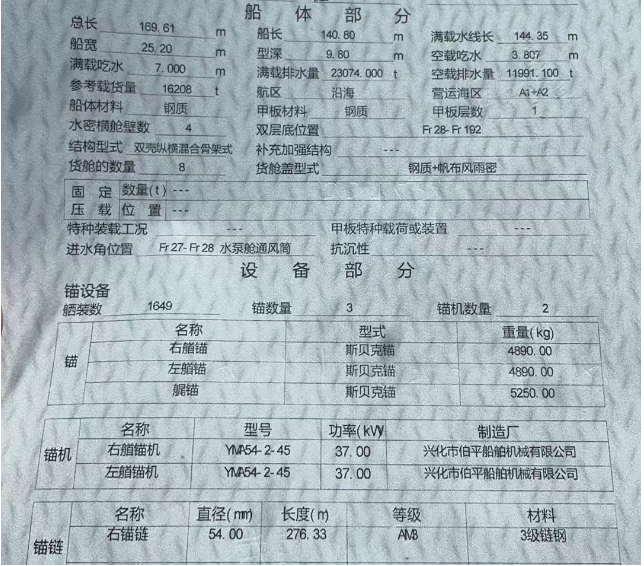 船 体 部 分
总长 169.61 m 船长 140.80 m 满载水线长 144.35 m
船宽 25.20 m 型深 9.80 m 空载吃水 3.807 m
满载吃水 7.000 m 满载排水量 23074.000 t 空载排水量 11991.100 t
参考载货量 16208 t 航区 沿海 营运海区 A1+A2
船体材料 钢质 甲板材料 钢质 甲板层数 1
水密横舱壁数 4 双层底位置 Fr28-Fr192
结构型式 双壳纵横混合骨架式 补充加强结构 ---
货舱的数量 8 货舱盖型式 钢质+帆布风雨密
固 定 数量(t) ---
压 载 位 置 ---
特种装载工况 --- 甲板特种载荷或装置 ---
进水角位置 Fr27-Fr28 水泵舱通风筒 抗沉性 ---
设 备 部 分
锚设备
舾装数 1649 锚数量 3 锚机数量 2
锚
名称 型式 重量(kg)
右艏锚 斯贝克锚 4890.00
左艏锚 斯贝克锚 4890.00
艉锚 斯贝克锚 5250.00
锚机
名称 型号 功率(kW) 制造厂
右艏锚机 YMA54-2-45 37.00 兴化市伯平船舶机械有限公司
左艏锚机 YMA54-2-45 37.00 兴化市伯平船舶机械有限公司
锚链
名称 直径(mm) 长度(m) 等级 材料
右锚链 54.00 276.33 AM3 3级链钢